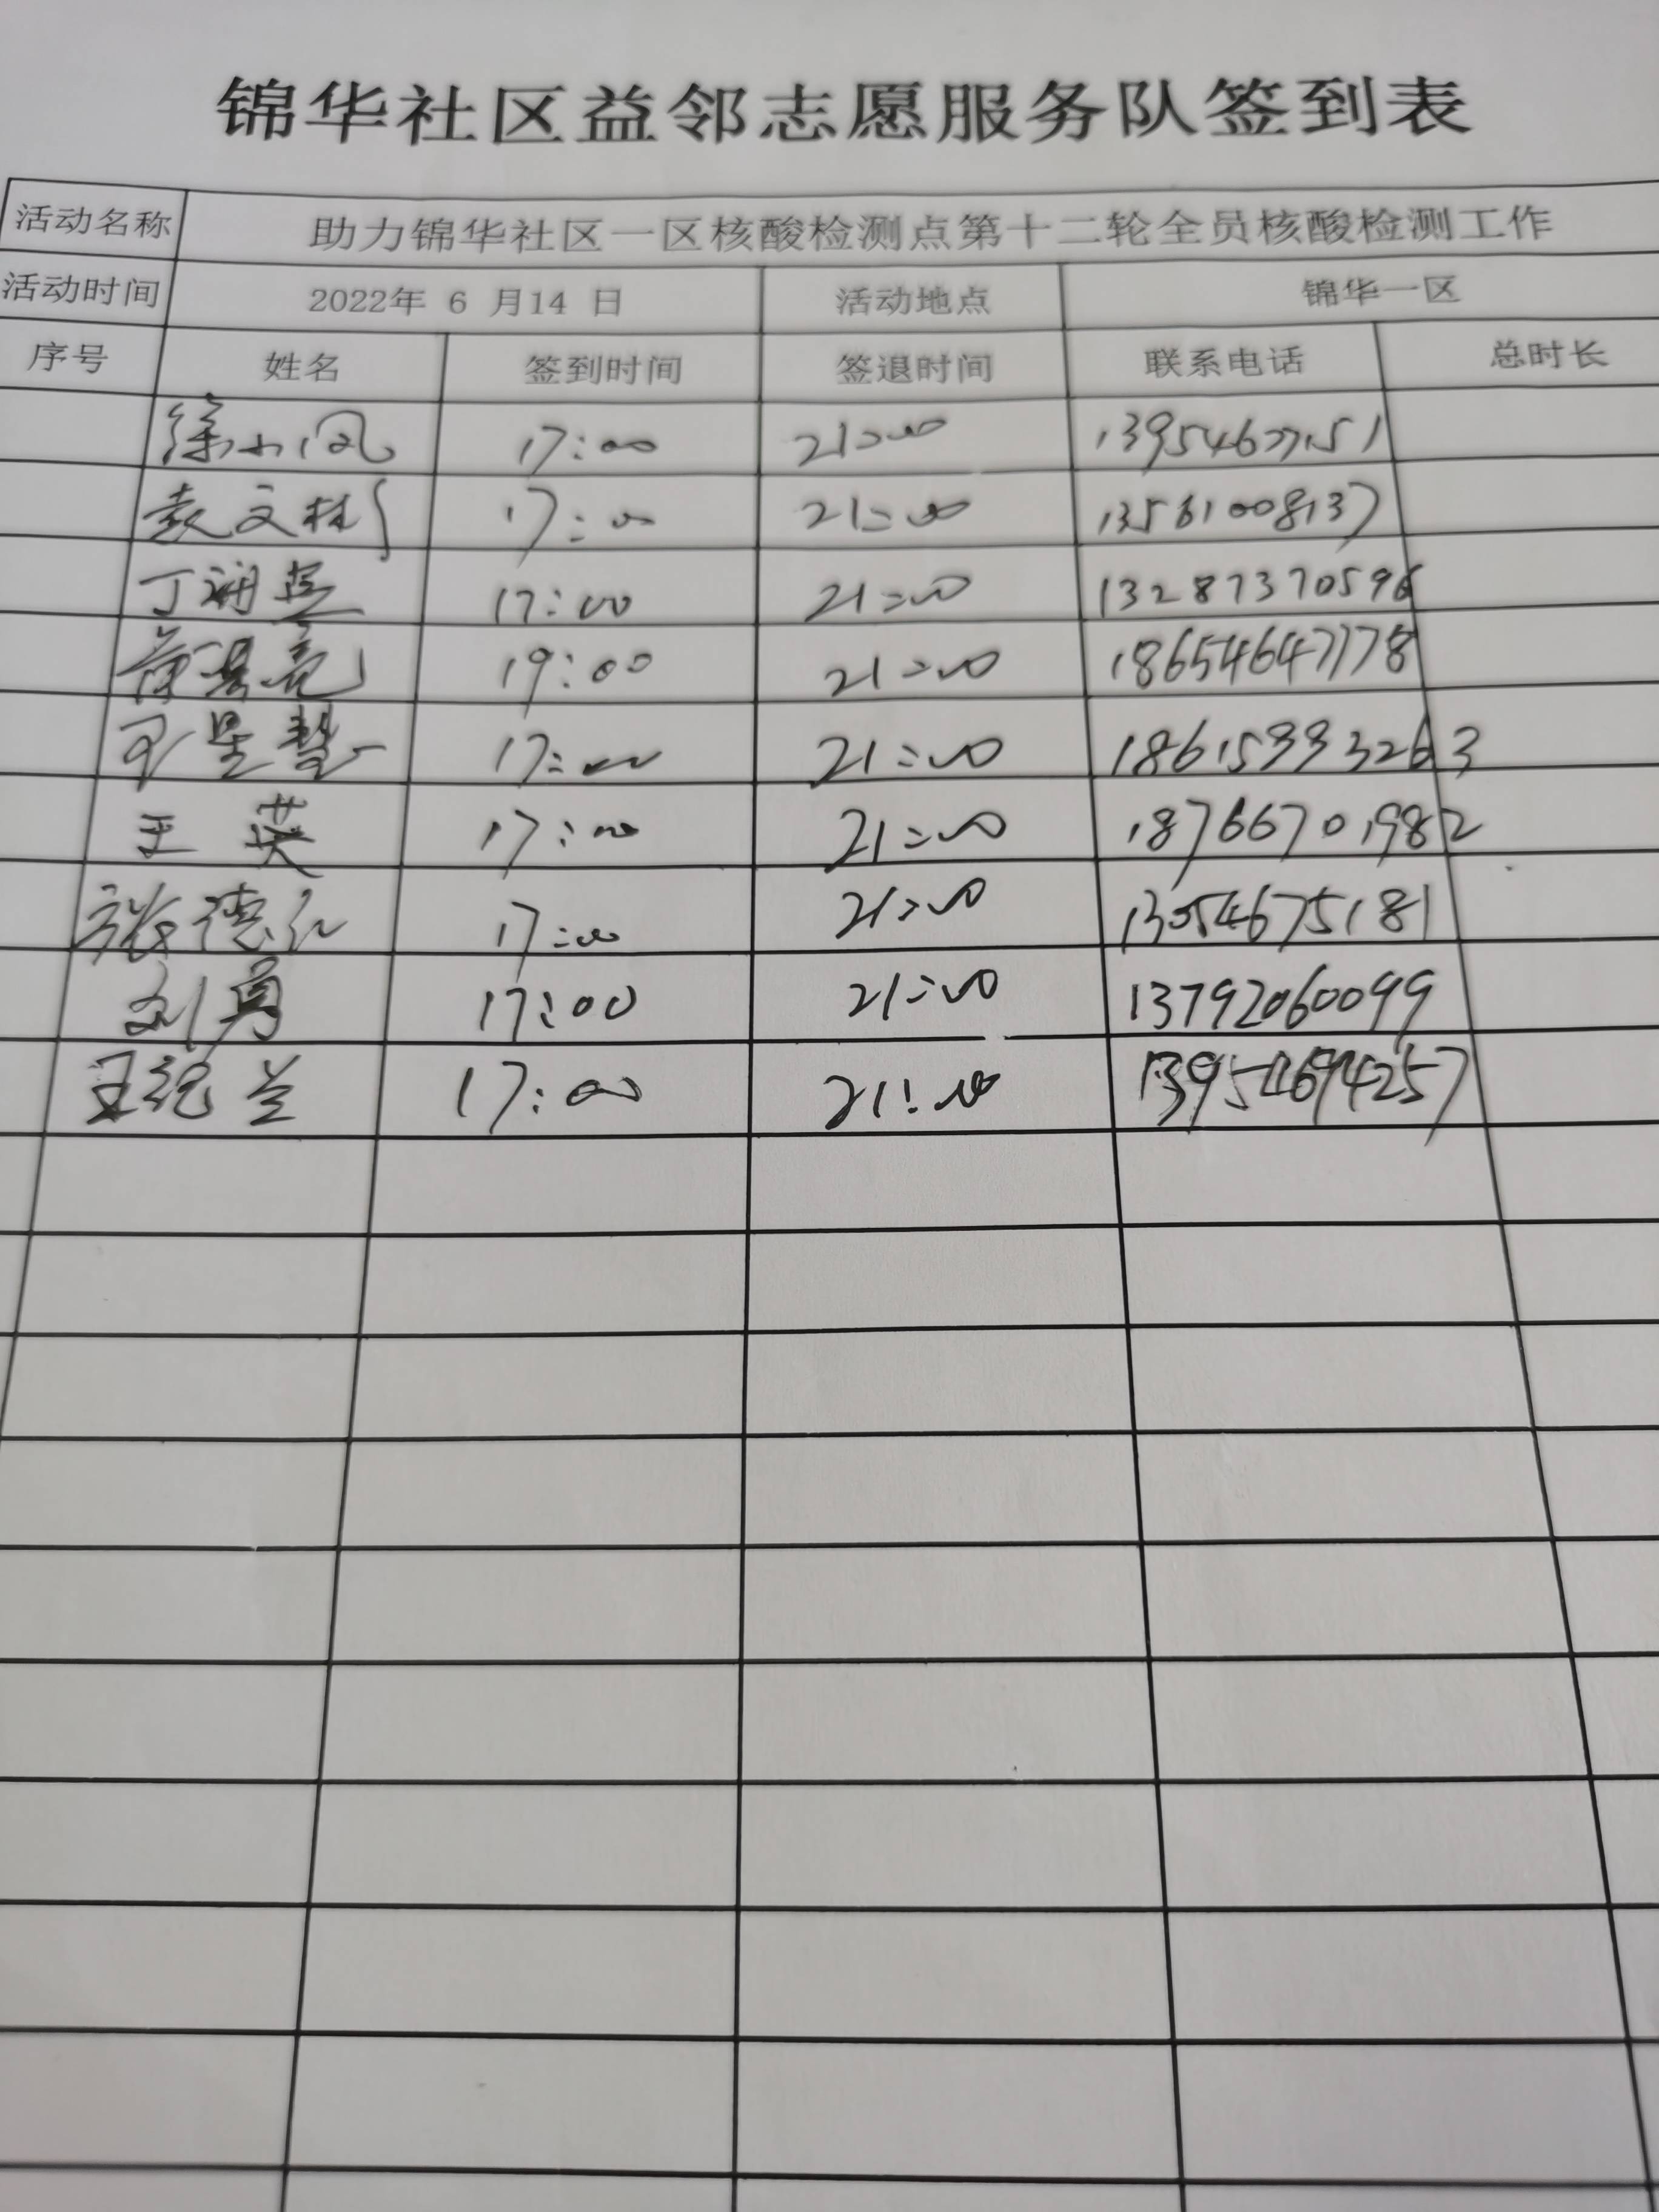 锦华社区益邻志愿服务队签到表
活动名称 助力锦华社区一区核酸检测点第十二轮全员核酸检测工作
活动时间 2022年 6 月14 日 活动地点 锦华一区
序号 姓名 签到时间 签退时间 联系电话 总时长
徐小凤 17:00 21:00 13954677151
袁文村 17:00 21:00 13561008137
丁 17:00 21:00 13287370596
19:00 21:00 18654647178
王星慧 17:00 21:00 18615333263
王英 17:00 21:00 18766701982
张德红 17:00 21:00 13054675181
刘勇 17:00 21:00 13792060099
王纪兰 17:00 21:00 13954694257